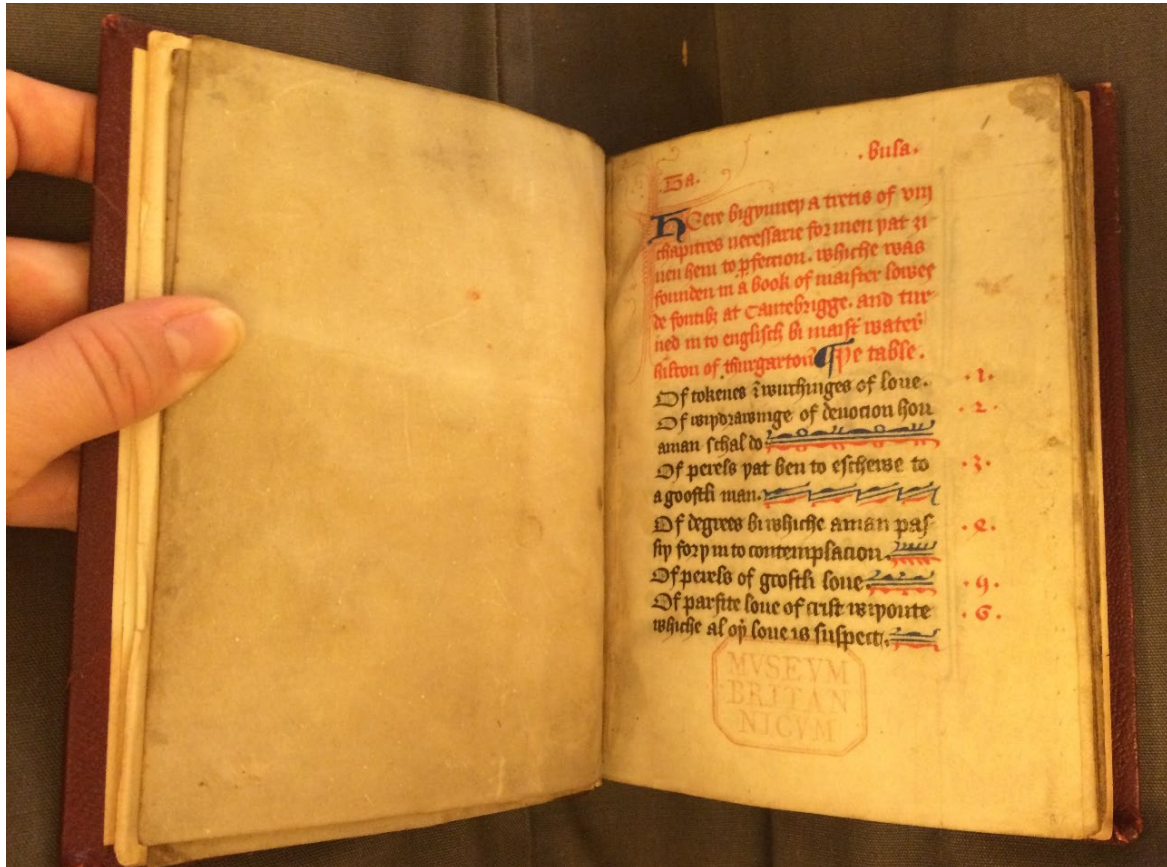 .busa.
.ha.
Here bigynneþ a tretis of viii
chapitres necessarie for men þat ȝi
uen hem to pfection. whiche was
founden in a book of maister lowes
de fontibȝ at Cantebrigge. and tur
ned in to englisch bi maist water
hilton of thurgarton ¶ þe table.
Of tokenes ī wurchinges of loue. .1.
Of wiþdrawinge of deuocion hou .2.
aman schal do
Of perels þat ben to eschewe to .3.
a goostli man.
Of degrees bi whiche aman pas .4.
siþ forþ in to contemplacion.
Of perels of goostli loue. .5.
Of parfite loue of crist wiþoute .6.
whiche al oþ loue is suspect.
MVSEVM
BRITAN
NICVM